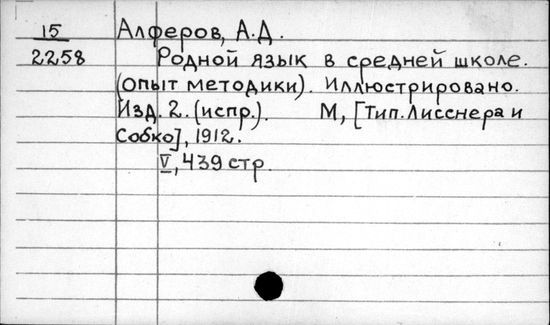 15 Алферов, А.Д.
2258 Родной язык в средней школе.
(опыт методики). Иллюстрировано.
Изд. 2. (испр.). М, [Тип. Лисснера и
Собко], 1912.
V, 439 стр.